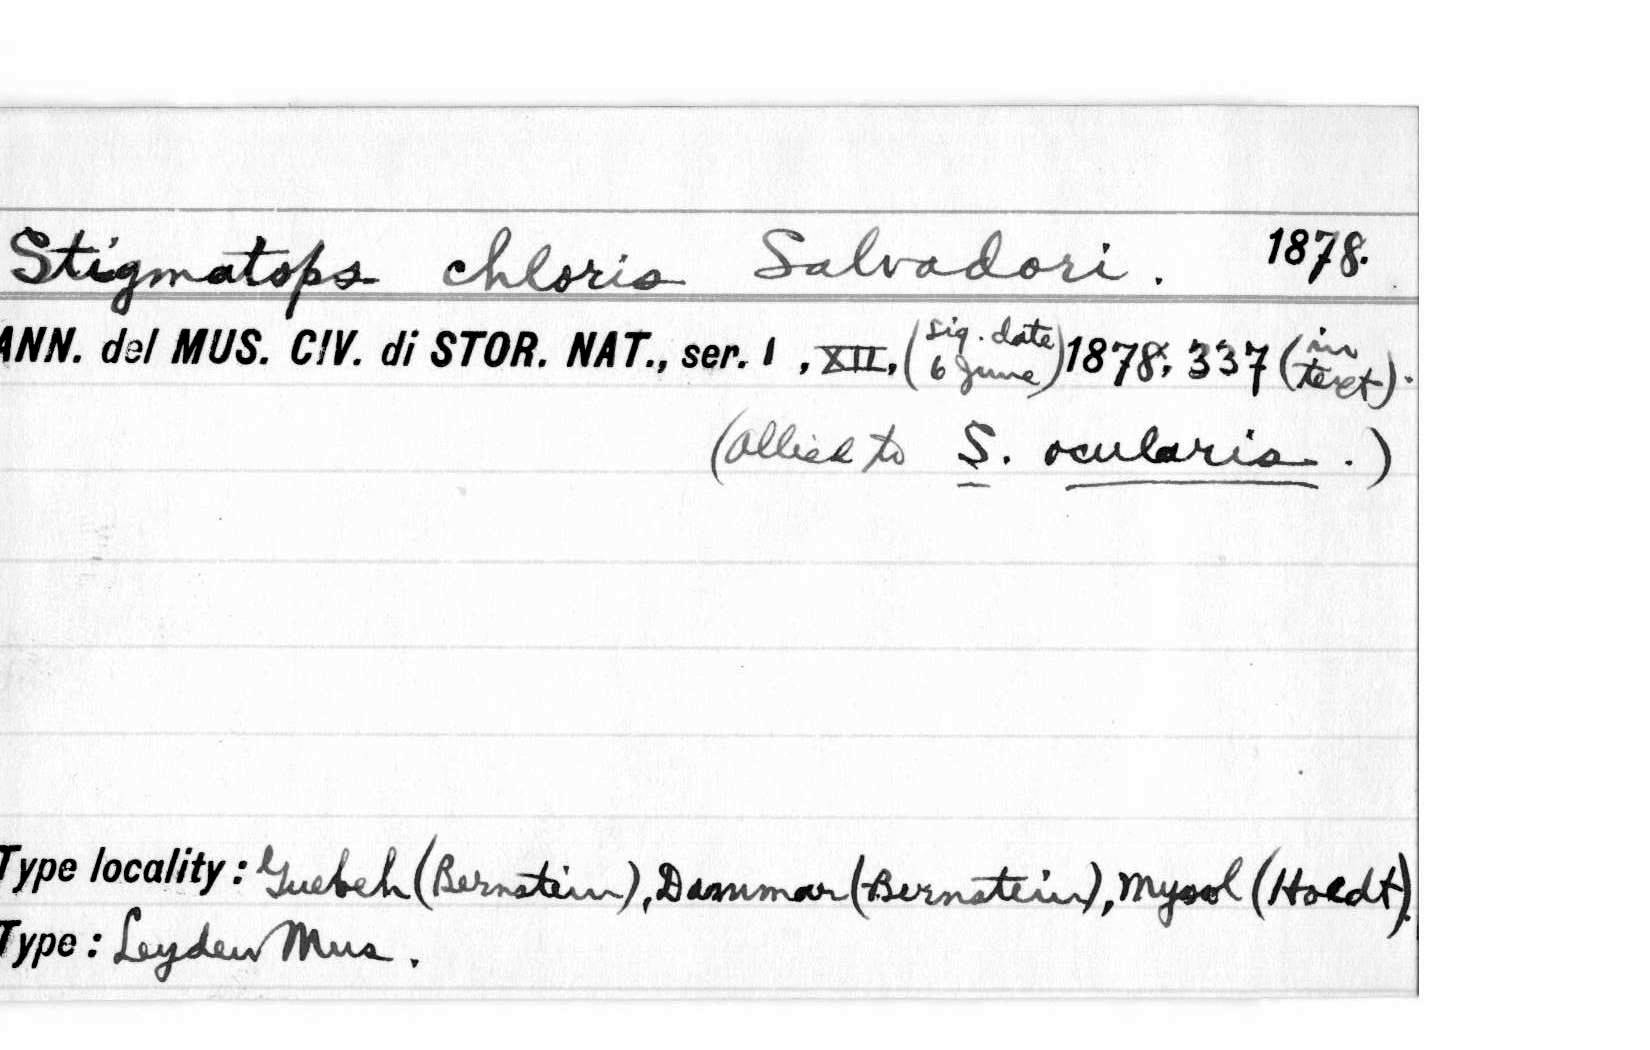 Stigmatops chloris Salvadori. 1878.
ANN. del MUS. CIV. di STOR. NAT., ser. 1, XII, (sig. date 6 June) 1878, 337 (in text).
(allied to S. ocularis.)
Type locality: Guebeh (Bernstein), Dammar (Bernstein), Mysol (Hoedt).
Type: Leyden Mus.